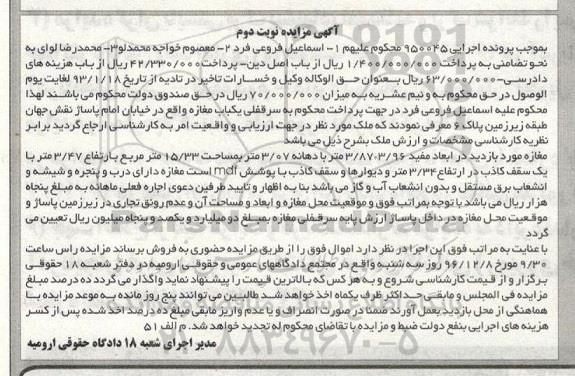 آگهی مزایده نوبت دوم
بموجب پرونده اجرایی ۹۵۰۰۴۵ محکوم علیهم ۱- اسماعیل فروعی فرد ۲- معصوم خواجه محمدلو ۳- محمدرضا لوای به
نحو تضامنی به پرداخت ۱/۴۰۰/۰۰۰/۰۰۰ ریال از باب اصل دین- پرداخت ۴۲/۳۳۰/۰۰۰ ریال از باب هزینه های
دادرسی- ۶۳/۰۰۰/۰۰۰ ریال بعنوان حق الوکاله وکیل و خسارات تاخیر در تادیه از تاریخ ۹۳/۱/۱۸ لغایت یوم
الوصول در حق محکوم به و نیم عشریه به میزان ۷۰/۰۰۰/۰۰۰ ریال در حق صندوق دولت محکوم می باشند لهذا
محکوم علیه اسماعیل فروعی فرد در جهت پرداخت محکوم به سرقفلی یکباب مغازه واقع در خیابان امام پاساژ نقش جهان
طبقه زیرزمین پلاک ۶ معرفی نمودند که ملک مورد نظر در جهت ارزیابی و واقعیت امر به کارشناسی ارجاع گردید برابر
نظریه کارشناسی مشخصات و ارزش ملک بشرح ذیل می باشد
مغازه مورد بازدید در ابعاد مفید ۳/۸۷،۳/۹۶ با دهانه ۳/۰۷ متر بمساحت ۱۵/۳۳ متر مربع با ارتفاع ۳/۴۷ متر با
یک سقف کاذب در ارتفاع ۳/۳۴ متر و دیوارها و سقف کاذب با پوشش mdf است مغازه دارای درب و پنجره و شیشه و
انشعاب برق مستقل و بدون انشعاب آب و گاز می باشد بنا به اظهار و تایید طرفین دعوی اجاره فعلی ماهانه به مبلغ پنجاه
هزار ریال می باشد با توجه بمراتب فوق و موقعیت محل مغازه و ابعاد و مساحت آن و عدم رونق تجاری در زیرزمین پاساژ و
موقعیت محل مغازه در داخل پاساژ ارزش پایه سرقفلی مغازه بمبلغ دو میلیارد و یکصد و پنجاه میلیون ریال تعیین می
گردد
با عنایت به مراتب فوق این اجرا در نظر دارد اموال فوق را از طریق مزایده حضوری به فروش برساند مزایده راس ساعت
۹/۳۰ مورخ ۹۶/۱۲/۸ روز سه شنبه واقع در مجتمع دادگاههای عمومی و حقوقی ارومیه در دفتر شعبه ۱۸ حقوقی
برگزار و از قیمت کارشناسی شروع و به هر کس که بالاترین قیمت را پیشنهاد نماید واگذار می گردد ده درصد مبلغ
مزایده فی المجلس و مابقی حداکثر ظرف یکماه اخذ خواهد شد طالبین می توانند پنج روز مانده به موعد مزایده با
هماهنگی از محل بازدید بعمل آورند ضمنا در صورت انصراف و یا عدم واریز مابقی مبلغ ده درصد اخذ شده پس از کسر
هزینه های اجرایی بنفع دولت ضبط و مزایده با تقاضای محکوم له تجدید خواهد شد. م الف ۵۱
مدیر اجرای شعبه ۱۸ دادگاه حقوقی ارومیه